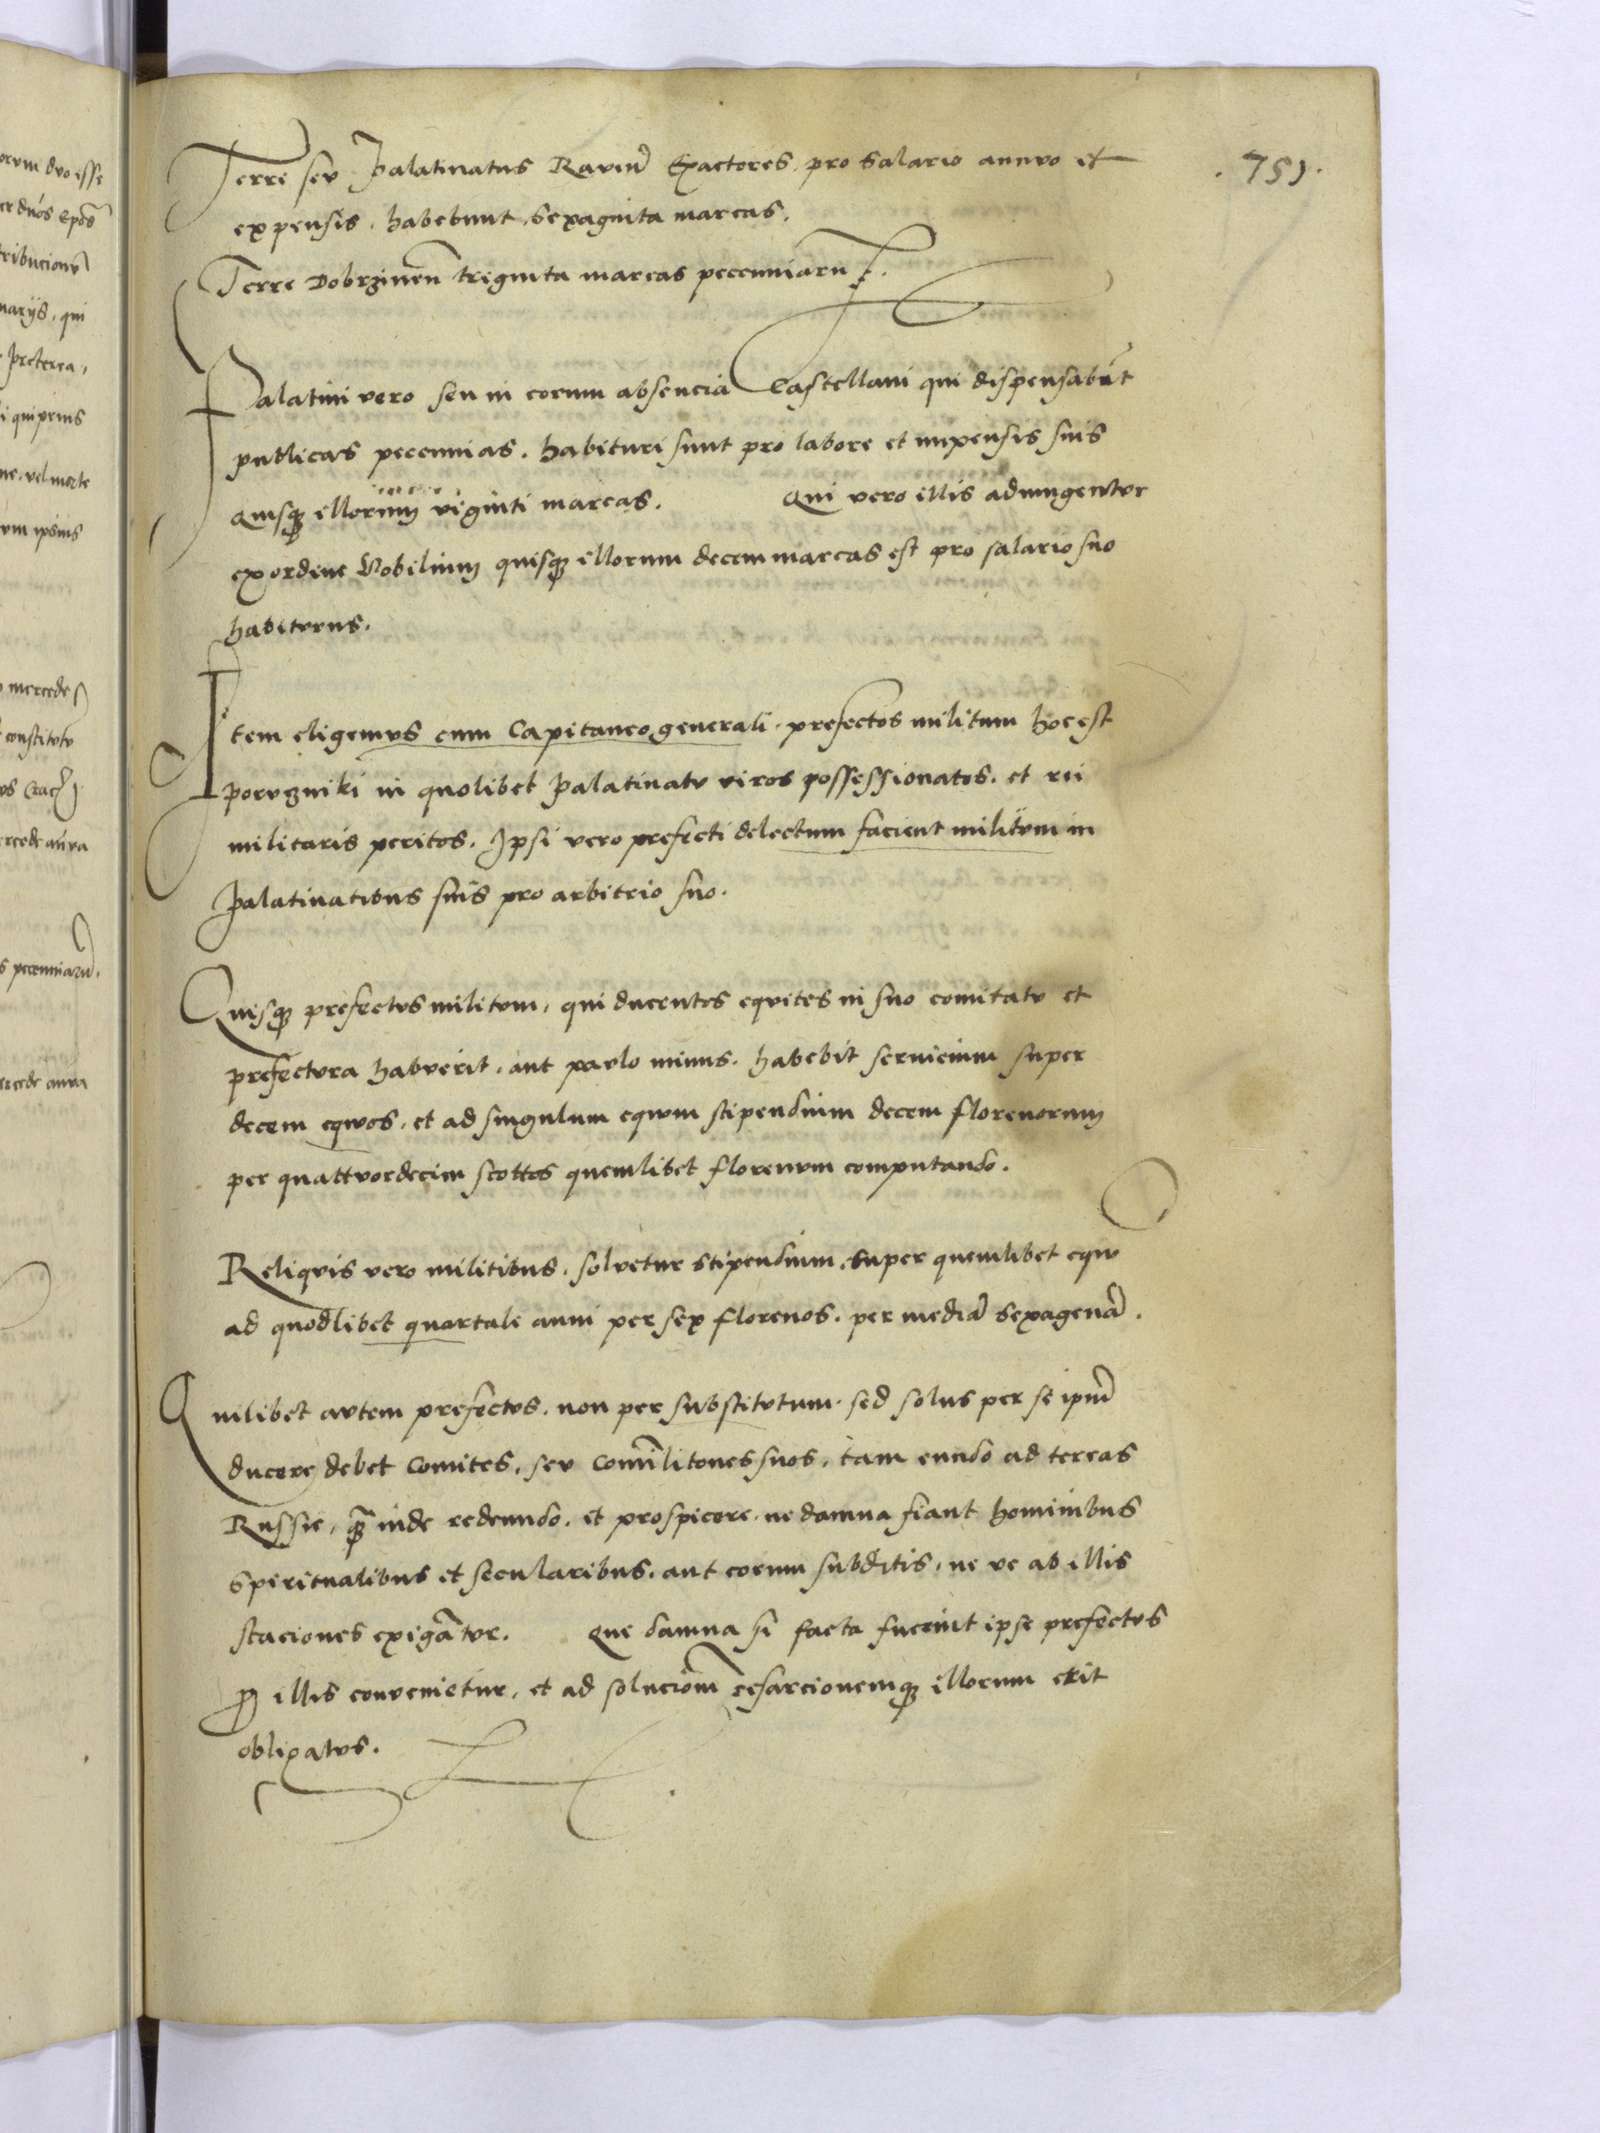 . 751 .
Terre seu Palatinatus Ravien̄ Exactores, pro salario annuo et
expensis, habebunt, sexaginta marcas.
Terre Dobrzinen̄ triginta marcas pecuniaru
Palatini vero seu in eorum absencia Castellani qui dispensabūt
publicas pecunias. habituri sunt pro labore et impensis suis
quisq̨ illorum viginti marcas. Qui vero illis adiungentur
ex ordine Nobilium quisq̨ illorum decem marcas est pro salario suo
habiturus.
Item eligemus cum Capitaneo generali prefectos militum hoc est
poruzniki in quolibet Palatinatu viros possessionatos. et rei
militaris peritos. Ipsi vero prefecti delectum facient militum in
Palatinatibus suis pro arbitrio suo.
Quisq̨ prefectus militum, qui ducentos equites in suo comitatu et
prefectura habuerit. aut paulo minus. habebit servicium super
decem equos. et ad singulum equum stipendium decem florenorum
per quattuordecim scottos quemlibet florenum computando.
Reliquis vero militibus. solvetur stipendium, super quemlibet equū
ad quodlibet quartale anni per sex florenos. per mediā sexagenā.
Quilibet autem prefectus. non per substitutum. sed solus per se ipm̄
ducere debet Comites. seu Comīlitones suos, tam eundo ad terras
Russie, q̄ inde redeundo. et prospicere. ne damna fiant hominibus
spiritualibus et secularibus. aut eorum subditis. ne ve ab illis
staciones exigātur. Que damna si facta fuerint ipse prefectus
p̱ illis convenietur, et ad soluciom̄ resarcionemq̨ illorum erit
obligatus.